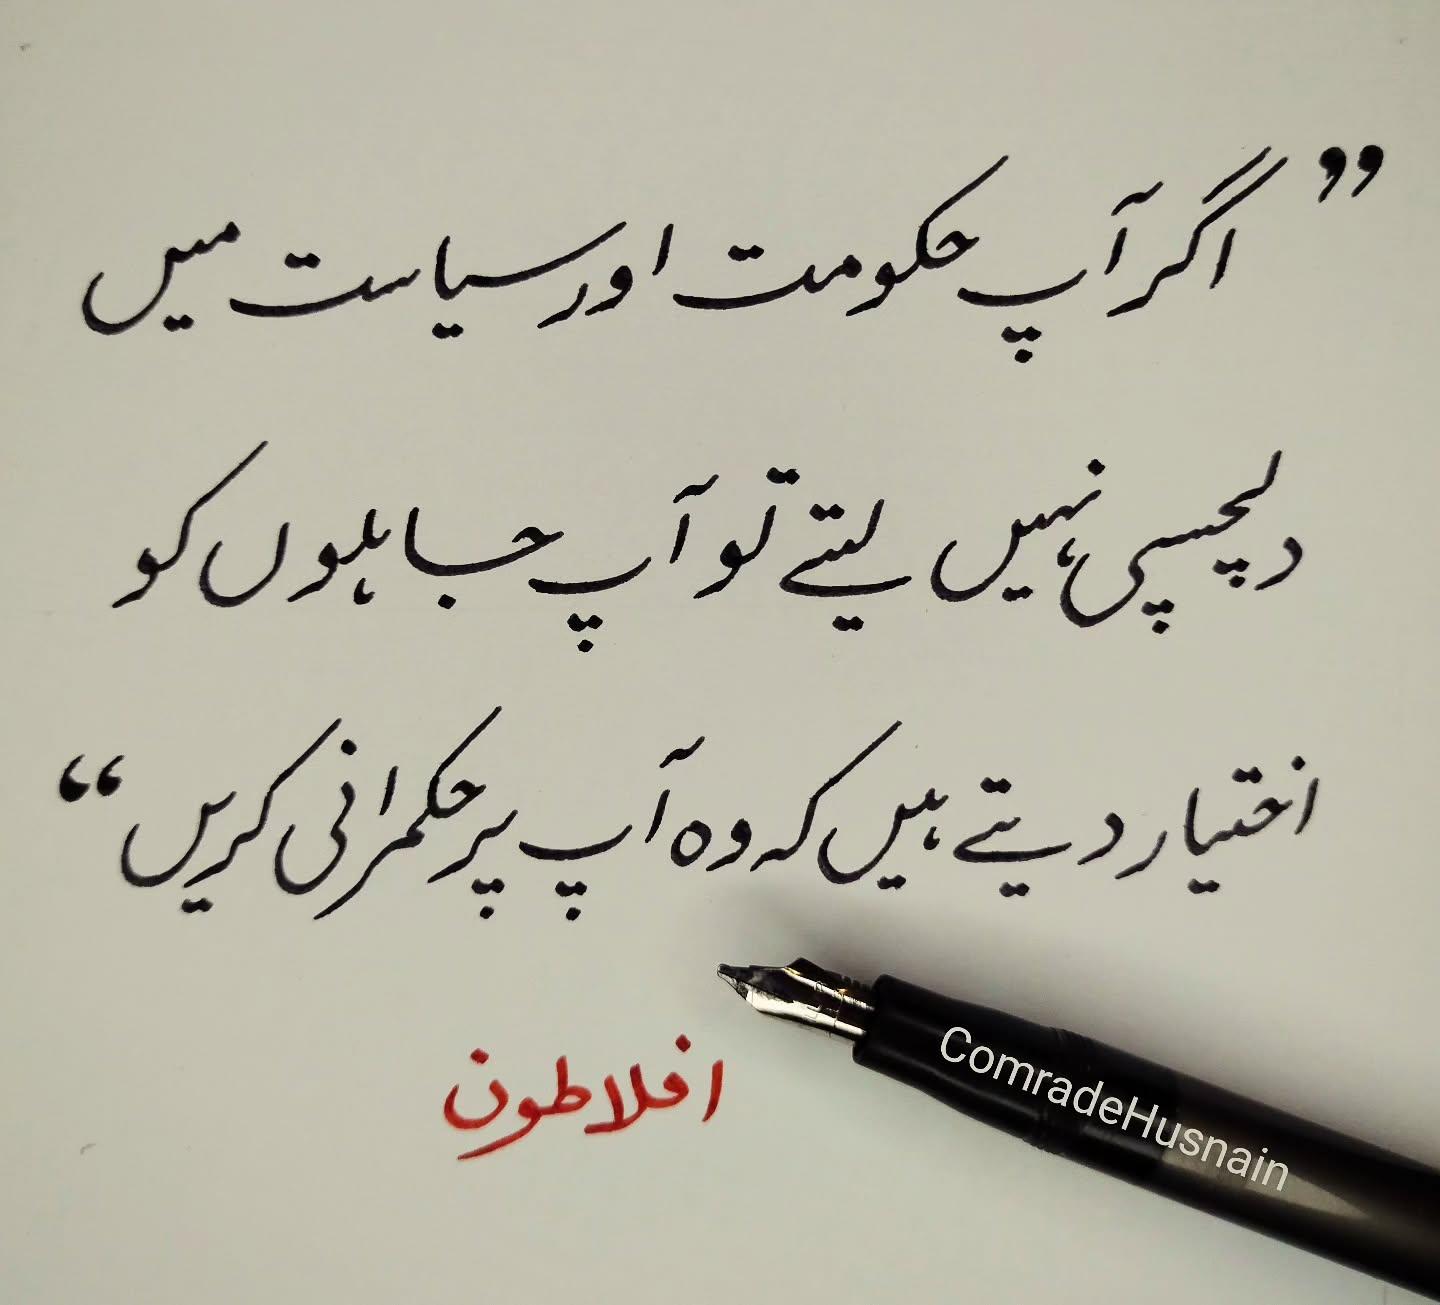 ”اگر آپ حکومت اور سیاست میں
دلچسپی نہیں لیتے تو آپ جاہلوں کو
اختیار دیتے ہیں کہ وہ آپ پر حکمرانی کریں“
افلاطون
ComradeHusnain